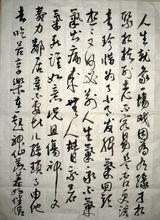 人生就像一場戲因為有緣才相
聚相扶到老不容易是否更該
去珍惜為了小事發脾氣回頭
想又何必別人生氣我不氣
氣出病來無人替我若
氣死誰如意況且傷神又
費力鄰居親朋不要比兒孫瑣事由他
去吃苦享樂在一起神仙羨慕好伴侶